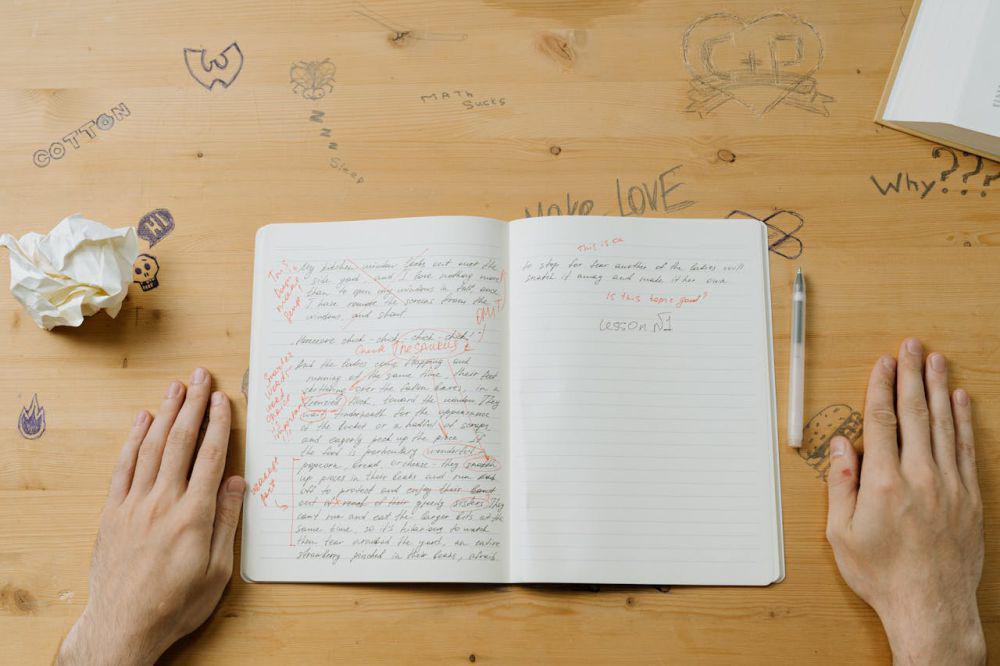 W
MATH
SUCKS
C+P
COTTON
Z
N
N
Z
Sleep
Why???
Make LOVE
HI
This
My kitchen window looks out over the
side yard and I love nothing more
than to open my windows in fall, once
I have removed the screens from the
windows, and shout,
OMIT
chick-chick-chick-chick!"
Check Thesaurus
And the ladies come flapping and
running at the same time, their feet
over the fallen leaves, in a
frenzied flock, toward the window. They
wait underneath for the appearance
of the bucket or a handful of scraps
and eagerly peck up the piece. If
the food is particulary wonderful:
popcorn, bread, or cheese - they snatch
up pieces in their beaks and run
off to protect and enjoy their
out of reach of their greedy sisters. They
can't run and eat the larger bits at the
same time, so it's hilarious to watch
them tear around the yard, an entire
strawberry pinched in their beaks, afraid
Smaller
words-
word
choice
is
important
part
This is
to stop for fear another of the ladies will
snatch it away and make it her own.
Is this topic good?
Lesson №1